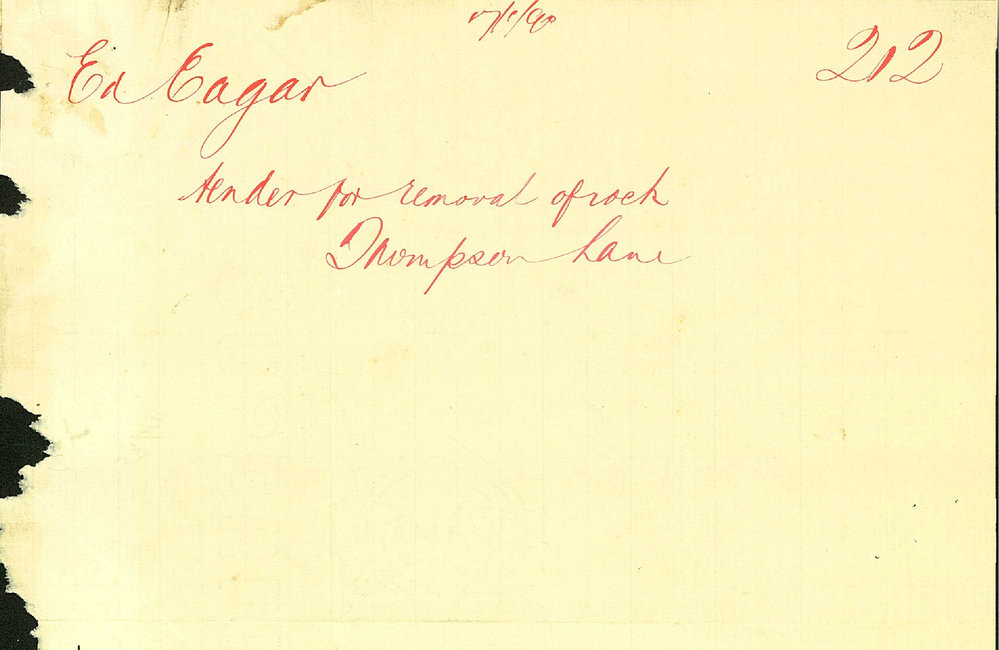 17/1/90
212
Ed Eagar
tender for removal of rock
Thompson Lane